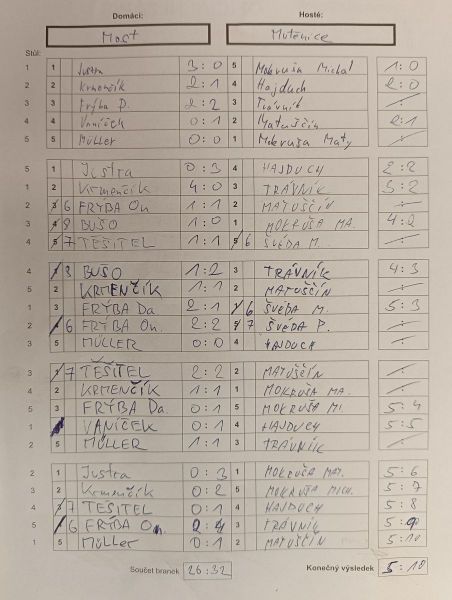 Domácí: Hosté:
Most Mutěnice
Stůl:
1 1 Justra 3:0 5 Mokruša Michal 1:0
2 2 Krmenčík 2:1 4 Hajduch 2:0
3 3 Frýba P. 2:2 3 Trávník -:-
4 4 Vaníček 0:1 2 Matuščín 2:1
5 5 Müller 0:0 1 Mokruša Maty -:-
5 1 Justra 0:3 4 HAJDUCH 2:2
1 2 Krmenčík 4:0 3 TRÁVNÍK 3:2
2 6 FRÝBA On 1:1 2 MATUŠČÍN -:-
3 8 BUŠO 1:0 1 MOKRUŠA MA. 4:2
4 7 TĚŠITEL 1:1 6 ŠVÉDA M. -:-
4 8 BUŠO 1:2 3 TRÁVNÍK 4:3
5 2 KRMENČÍK 1:1 2 MATUŠČÍN -:-
1 3 FRÝBA Da 2:1 6 ŠVÉDA M. 5:3
2 6 FRÝBA On. 2:2 7 ŠVÉDA P. -:-
3 5 MÜLLER 0:0 4 HAJDUCH -:-
3 7 TĚŠITEL 2:2 2 MATUŠČÍN -:-
4 2 KRMENČÍK 1:1 1 MOKRUŠA MA. -:-
5 3 FRÝBA Da 0:1 5 MOKRUŠA MI. 5:4
1 VANÍČEK 0:1 4 HAJDUCH 5:5
2 5 MÜLLER 1:1 3 TRÁVNÍK -:-
2 1 Justra 0:3 1 MOKRUŠA MAT. 5:6
3 2 Krmenčík 0:2 5 MOKRUŠA MICH. 5:7
4 7 TĚŠITEL 0:1 4 HAJDUCH 5:8
5 6 FRÝBA On 2:4 3 TRÁVNÍK 5:9
1 5 Müller 0:1 2 MATUŠČÍN 5:10
Součet branek 26:32 Konečný výsledek 5:10